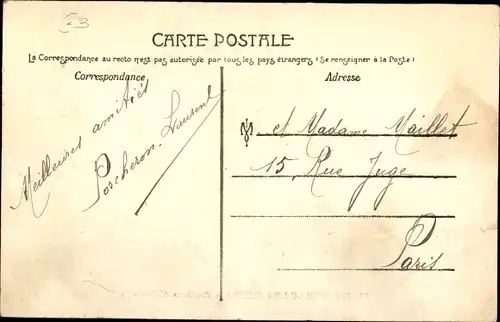 CARTE POSTALE
La Correspondance au recto n'est pas autorisée par tous les pays étrangers (Se renseigner à la Poste)
Correspondance
Adresse
Meilleures amitiés
Porcheron Laurent
M et Madame Maillet
15, Rue Juge
Paris